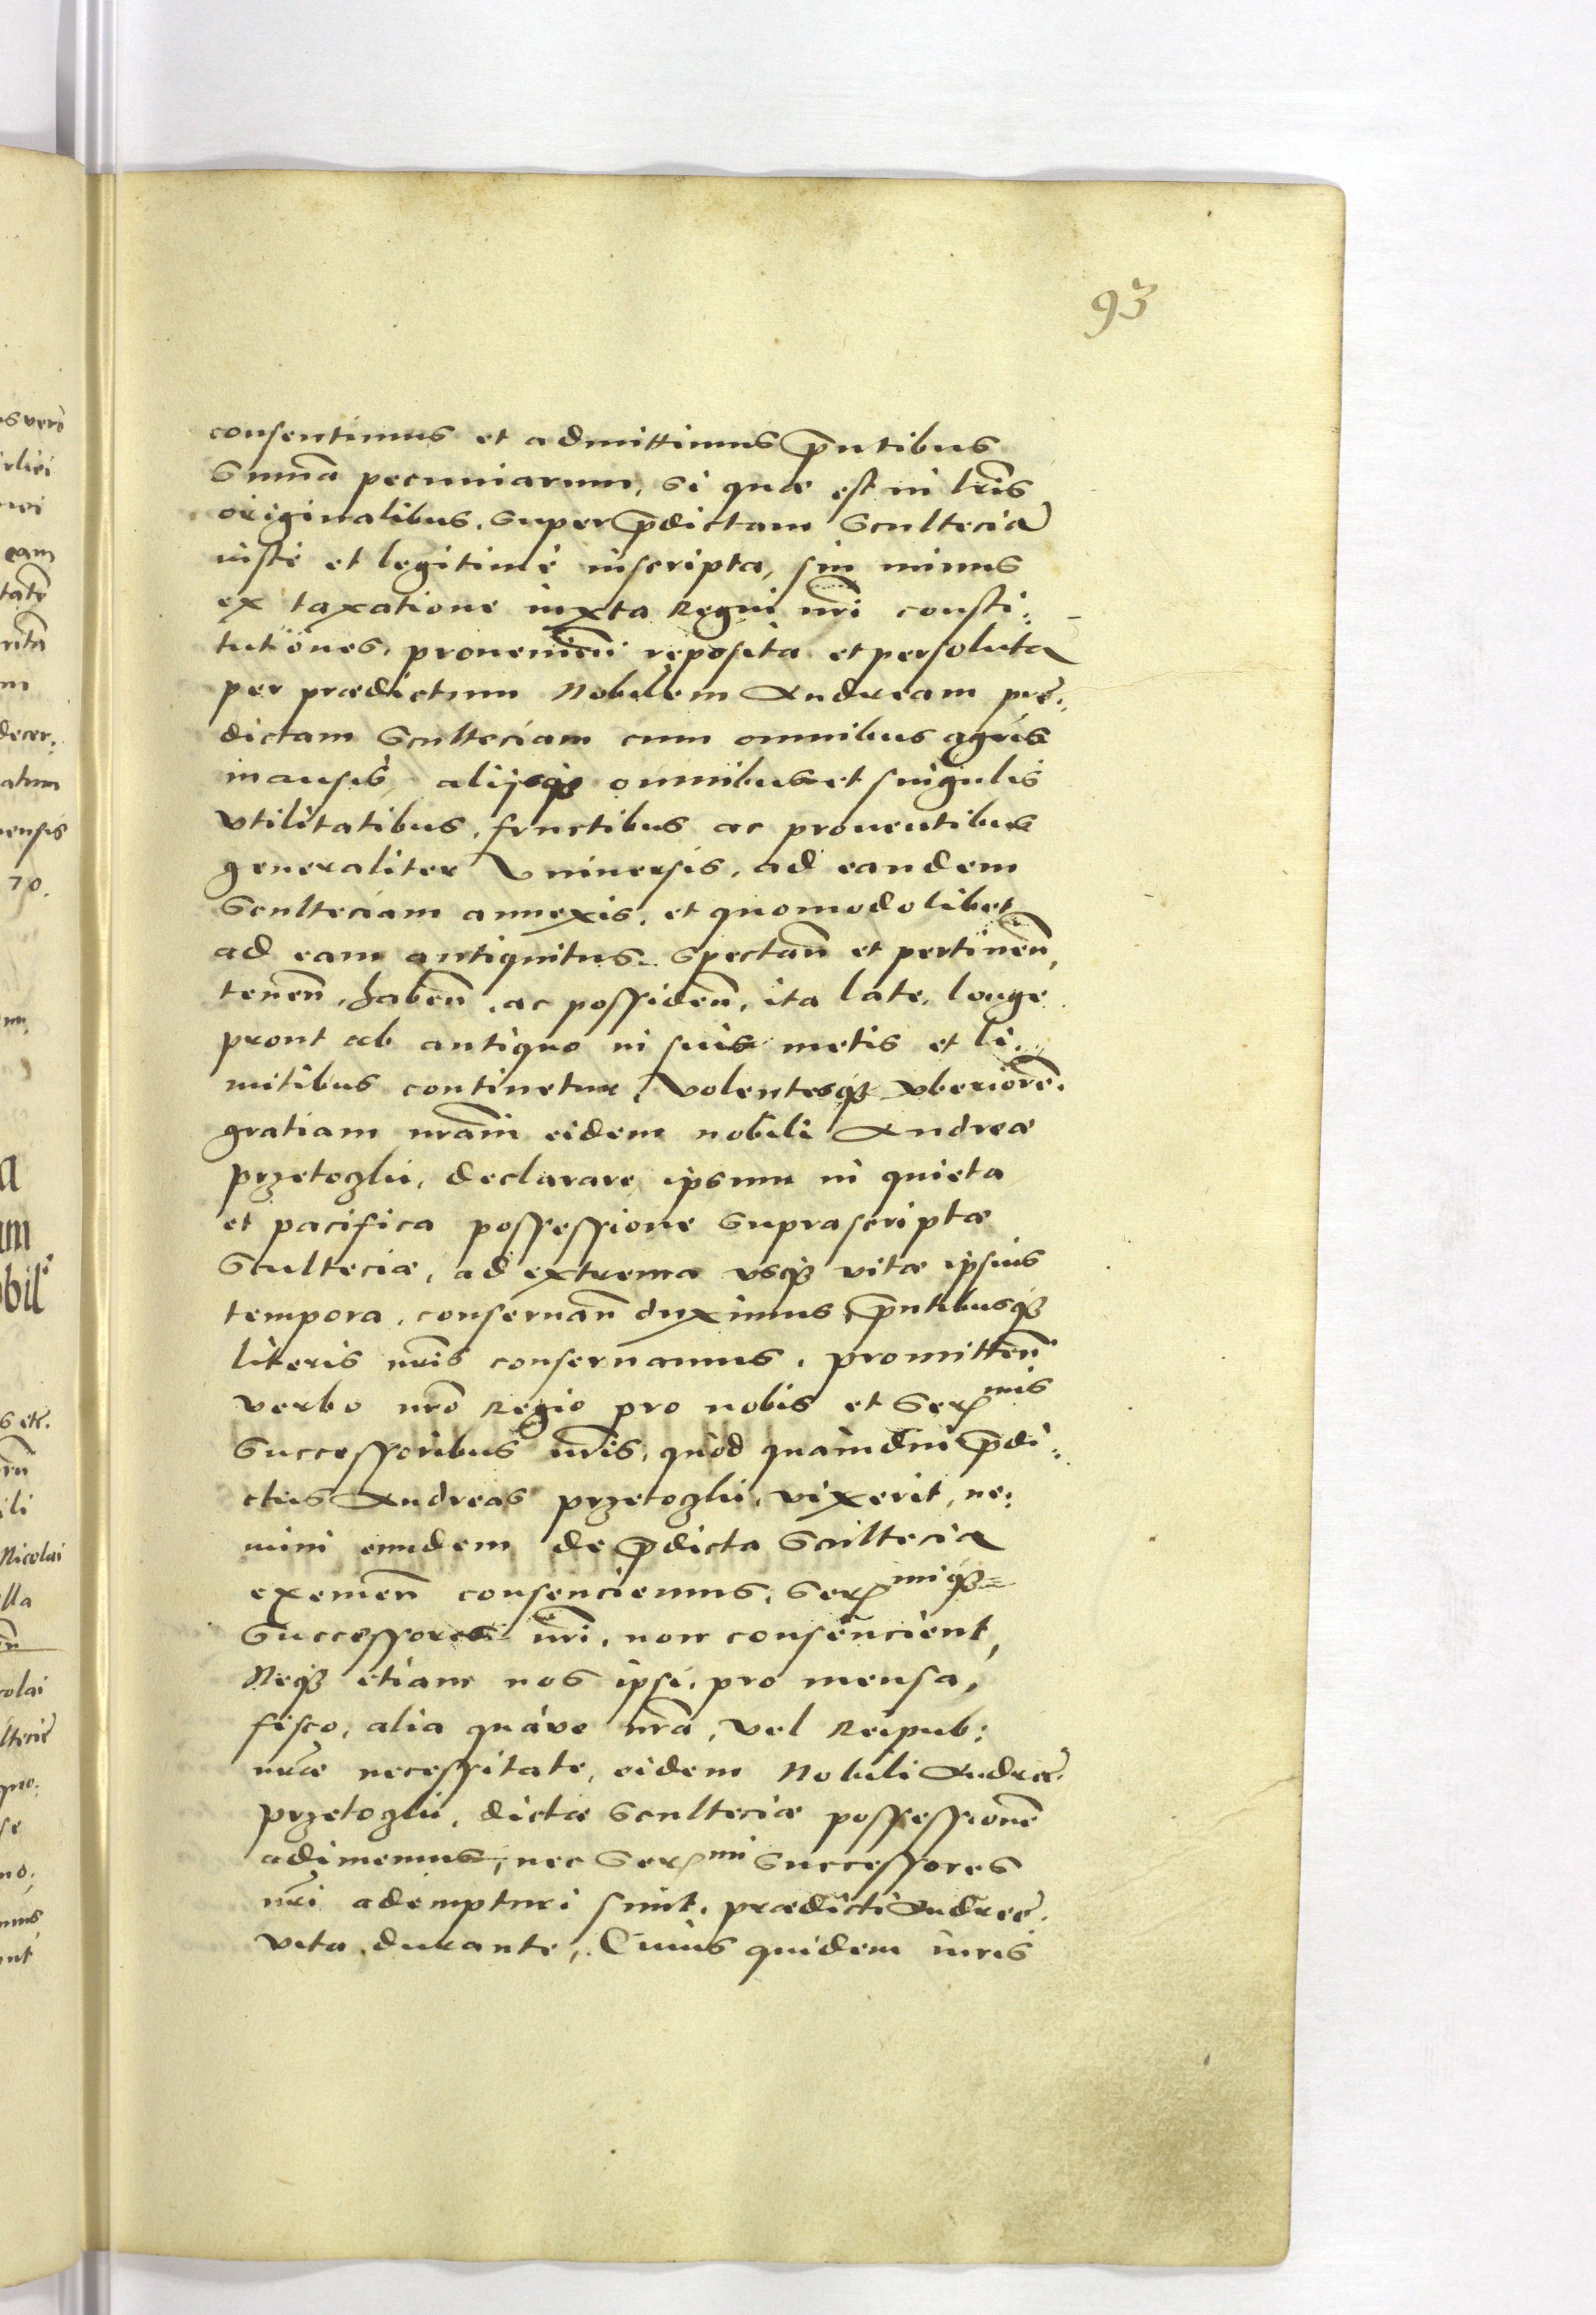 93
consentimus et admittimus p̄ntibus
Summa pecuniarum, si quae est in lr̄is
originalibus, super p̄dictam Sculteciā
iuste et legitimè inscripta, sin minus
ex taxatione iuxta Regni nr̄i consti:
tutiones, prouenien̄ reposita et persoluta
per praedictum Nobilem Andream prę:
dictam Sculteciam cum omnibus agris
mansis, alijsq₃ omnibus et singulis
vtilitatibus, fructibus ac prouentibus
generaliter Vniuersis, ad eandem
Sculteciam annexis, et quomodolibet
ad eam antiquitus spectan̄ et pertinen̄,
tenen̄, haben̄, ac possiden̄, ita late, longe
prout ab antiquo in suis metis et li:
mitibus continetur, Volentesq₃ vberiorē
gratiam nr̄am eidem nobili Andreae
Przetozlii, declarare, ipsum in quieta
et pacifica possessione suprascriptae
Sculteciae, ad extrema vsq₃ vitae ipsius
tempora, conseruan̄ duximus, p̄ntibusq₃
literis nr̄is conseruamus, promitten̄
verbo nr̄o Regio pro nobis et Serᵐⁱˢ
Successoribus nr̄is, quòd quàmdiu p̄di:
ctus Andreas Przetozlii, vixerit, ne:
mini eundem de p̄dicta Scultecia
exemen̄ consenciemus, Serᵐⁱq₃
Successores nr̄i, non consencient,
Neq₃ etiam nos ipsi, pro mensa,
fisco, alia quàve nr̄a, vel Reipub:
nr̄ae necessitate, eidem Nobili Andreę
Przetozlii, dictae Sculteciae possessionē
adimemus, nec Serᵐⁱ Successores
nr̄i adempturi sunt, praedicti Andreę
vita durante, Cuius quidem iuris